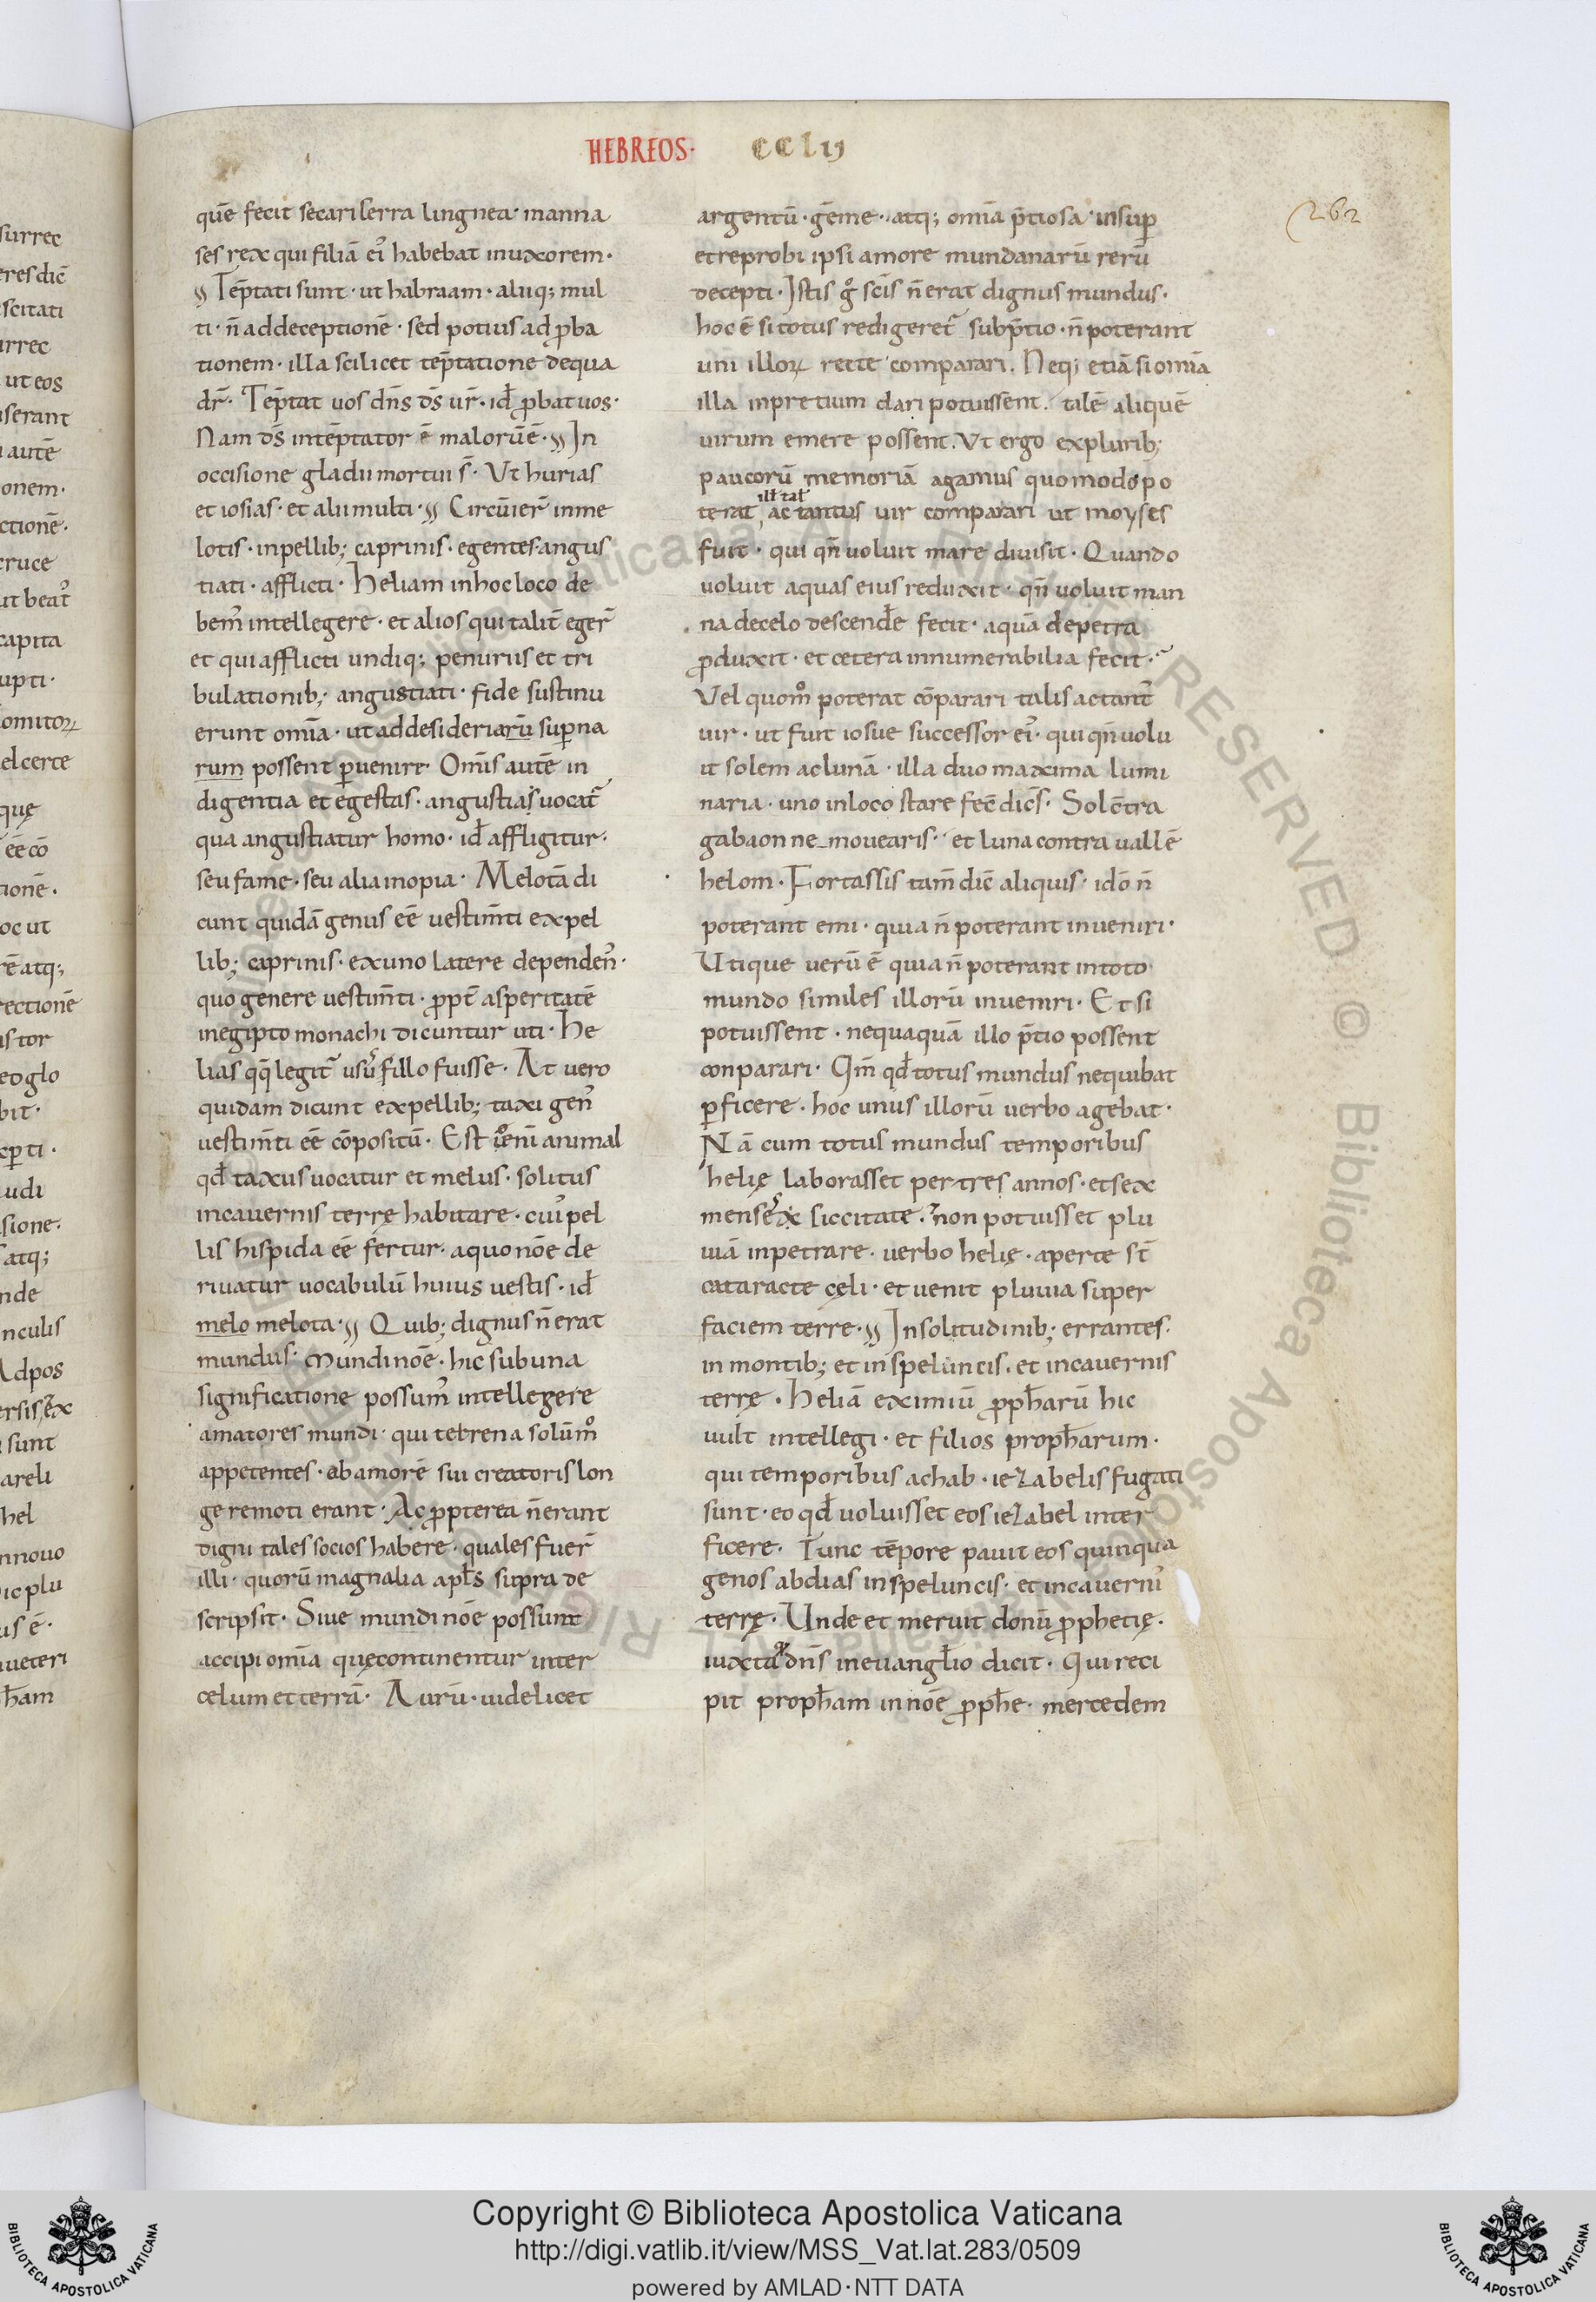 HEBREOS· CCLIJ
262
quē fecit secari serra lingnea· manna
ses rex qui filiā ei᾽ habebat in uxorem·
Tēptati sunt· ut habraam· aliiq; mul
ti· n̄ ad deceptionē· sed potius ad ꝓba
tionem· illa scilicet tēptatione de qua
dr̄· Tēptat uos dn̄s ds̄ ur̄· id̄ ꝓbat uos·
Nam ds̄ intēptator ē malorū ē· In
occisione gladii mortui s̄· Ut hurias
et iosias· et alii multi· Circūier̄ in me
lotis· in pellib; caprinis· egentes· angus
tiati· afflicti· Heliam in hoc loco de
bem᾽ intellegere· et alios qui talit̄ eger̄
et qui afflicti undiq; penuriis et tri
bulationib; angustiati· fide sustinu
erunt omīa· ut ad desideriarū suꝑna
rum possent ꝑuenire· Omīs autē in
digentia et egestas· angustias uocat᷑
qua angustiatur homo· id̄ affligitur·
seu fame· seu alia inopia· Melotā di
cunt quidā genus eē uestim̄ti ex pel
lib; caprinis· ex uno latere dependen᾽·
quo genere uestim̄ti· ꝓpt̄ asperitatē
in egipto monachi dicuntur uti· He
lias qq̄ legit᷑ usu᾽ f illo fuisse· At uero
quidam dicunt ex pellib; taxi gen᾽
uestim̄ti eē cōpositū· Est enī animal
qd̄ taxus uocatur et melus· solitus
in cauernis terrę habitare· cui᾽ pel
lis hispida eē fertur· a quo nōe de
riuatur uocabulū huius uestis· id̄
melo melota· Quib; dignus n̄ erat
mundus· Mundi nōe· hic sub una
significatione possum᾽ intellegere
amatores mundi· qui terrena solūm̊
appetentes· ab amorē sui creatoris lon
ge remoti erant· Ac ꝓpterea n̄ erant
digni tales socios habere· quales fuer̄
illi· quorū magnalia apłs supra de
scripsit· Siue mundi nōe possunt
accipi omīa quę continentur inter
celum et terrā· Aurū· uidelicet
argentū· gēme· atq; omīa p̄tiosa· insuꝑ
et reprobi ipsi amore mundanarū rerū
decepti· Istis g̊ scīs n̄ erat dignus mundus·
hoc ē si totus redigeret᷑ sub p̄tio· n̄ poterant
uni illoꝝ recte comparari. Neq; etiā si omīa
illa in pretium dari potuissent. talē aliquē
uirum emere possent. Ut ergo ex plurib;
paucorū memoriā agamus quomodo po
terat ill̄ tal̄ ac tantus uir comparari ut moyses
fuit· qui qn̄ uoluit mare diuisit· Quando
uoluit aquas eius reduxit· qn̄ uoluit man
na de celo descendē fecit· aquā de petra
ꝓduxit· et cetera innumerabilia fecit·
Vel quom̊ poterat cōparari talis ac tant᾽
uir· ut fuit iosue successor ei᾽· qui qn̄ uolu
it solem ac lunā· illa duo maxima lumi
naria· uno in loco stare fec̄ dic̄s· Sol c̄tra
gabaon ne mouearis· et luna contra uallē
helom· Fortassis tam̄ dic̄ aliquis· idō n̄
poterant emi· quia n̄ poterant inueniri·
Utique uerū ē quia n̄ poterant in toto
mundo similes illorū inueniri· Et si
potuissent· nequaquā illo p̄tio possent
conparari· Qm̄ qd̄ totus mundus nequibat
ꝑficere· hoc unus illorū uerbo agebat·
Nā cum totus mundus temporibus
helię laborasset per tres annos· et sex
menses ex siccitate· & non potuisset plu
uiā inpetrare· uerbo helię· aperte st̄
cataracte cęli· et uenit pluuia super
faciem terre· In solitudinib; errantes·
in montib; et in speluncis· et in cauernis
terrę· Heliā eximiū ꝓph̄arū hic
uult intellegi· et filios proph̄arum·
qui temporibus achab· iezabelis fugati
sunt· eo qd̄ uoluisset eos iezabel inter
ficere· Tunc tēpore pauit eos quinqua
genos abdias in speluncis· et in cauerni᾽
terrę· Unde et meruit donū ꝓphetię·
iuxta qd̄ dn̄s in euangl̄io dicit· Qui reci
pit proph̄am in nōe ꝓph̄e· mercedem
Copyright © Biblioteca Apostolica Vaticana
http://digi.vatlib.it/view/MSS_Vat.lat.283/0509
powered by AMLAD·NTT DATA
BIBLIOTECA APOSTOLICA VATICANA
BIBLIOTECA APOSTOLICA VATICANA